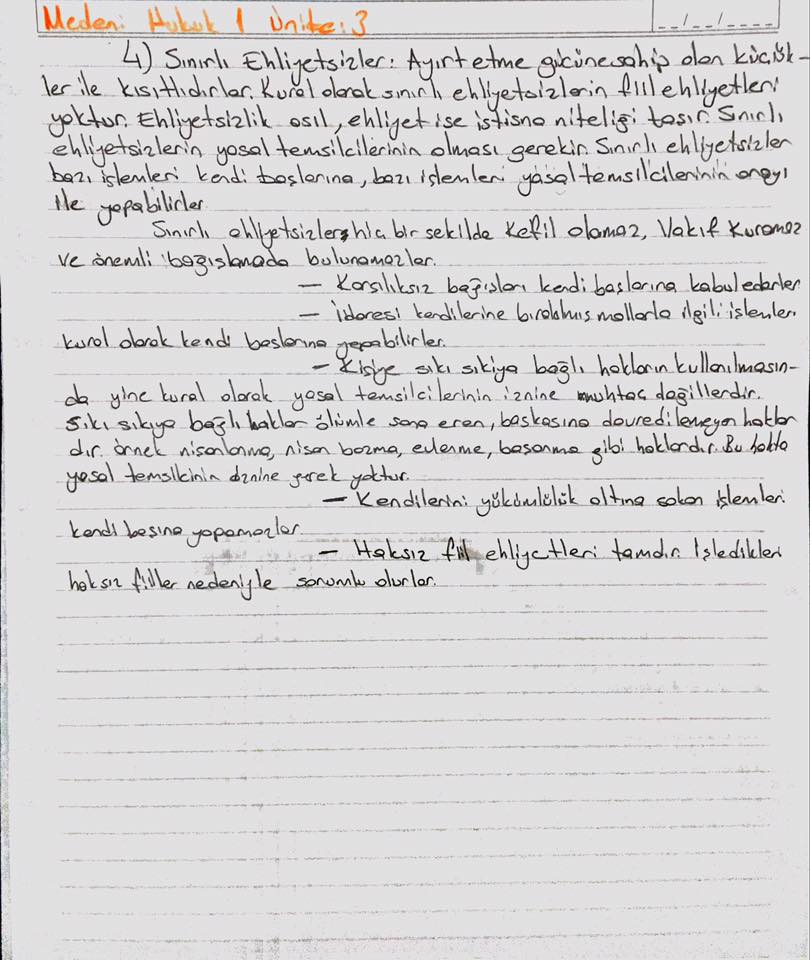 Medeni Hukuk 1 Ünite: 3
__/__/____
4) Sınırlı Ehliyetsizler: Ayırt etme gücüne sahip olan küçük-
ler ile kısıtlıdırlar. Kural olarak sınırlı ehliyetsizlerin fiil ehliyetleri
yoktur. Ehliyetsizlik asıl, ehliyet ise istisna niteliği taşır. Sınırlı
ehliyetsizlerin yasal temsilcilerinin olması gerekir. Sınırlı ehliyetsizler
bazı işlemleri kendi başlarına, bazı işlemleri yasal temsilcilerinin onayı
ile yapabilirler.
Sınırlı ehliyetsizler hiç bir şekilde kefil olamaz, Vakıf kuramaz
ve önemli bağışlamada bulunamazlar.
– Karşılıksız bağışları kendi başlarına kabul ederler
– İdaresi kendilerine bırakılmış mallarla ilgili işlemleri
kural olarak kendi başlarına yapabilirler.
– Kişiye sıkı sıkıya bağlı hakların kullanılmasın-
da yine kural olarak yasal temsilcilerinin iznine muhtaç değillerdir.
Sıkı sıkıya bağlı haklar ölümle sona eren, başkasına devredilemeyen haklar
dır. örnek nişanlanma, nişan bozma, evlenme, boşanma gibi haklardır. Bu hakta
yasal temsilcinin iznine gerek yoktur.
– Kendilerini yükümlülük altına sokan işlemleri
kendi başına yapamazlar.
– Haksız fiil ehliyetleri tamdır. İşledikleri
haksız fiiller nedeniyle sorumlu olurlar.